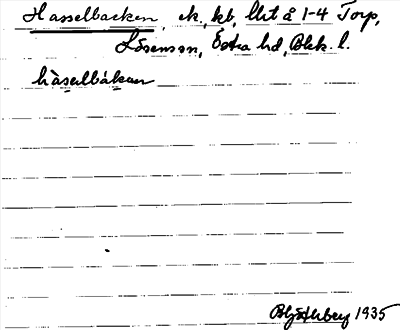 Hasselbacken, ek, kb, litt å 1-4 Torp,
Lösen sn, Östra hd, Blek. l.
hasselbakan
1935